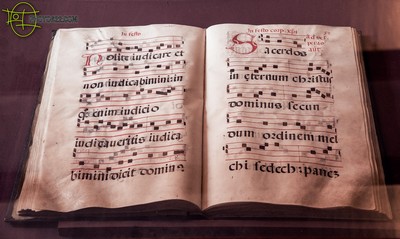 In festo
Nolite iudicare et
non iudicabimini: in
quo enim iudicio
iudicaueritis iudica
bimini dicit dominus
In festo corp. Xpi
Sacerdos
Ad
in eternum christus
dominus secun
dum ordinem mel
chi sedech: panes